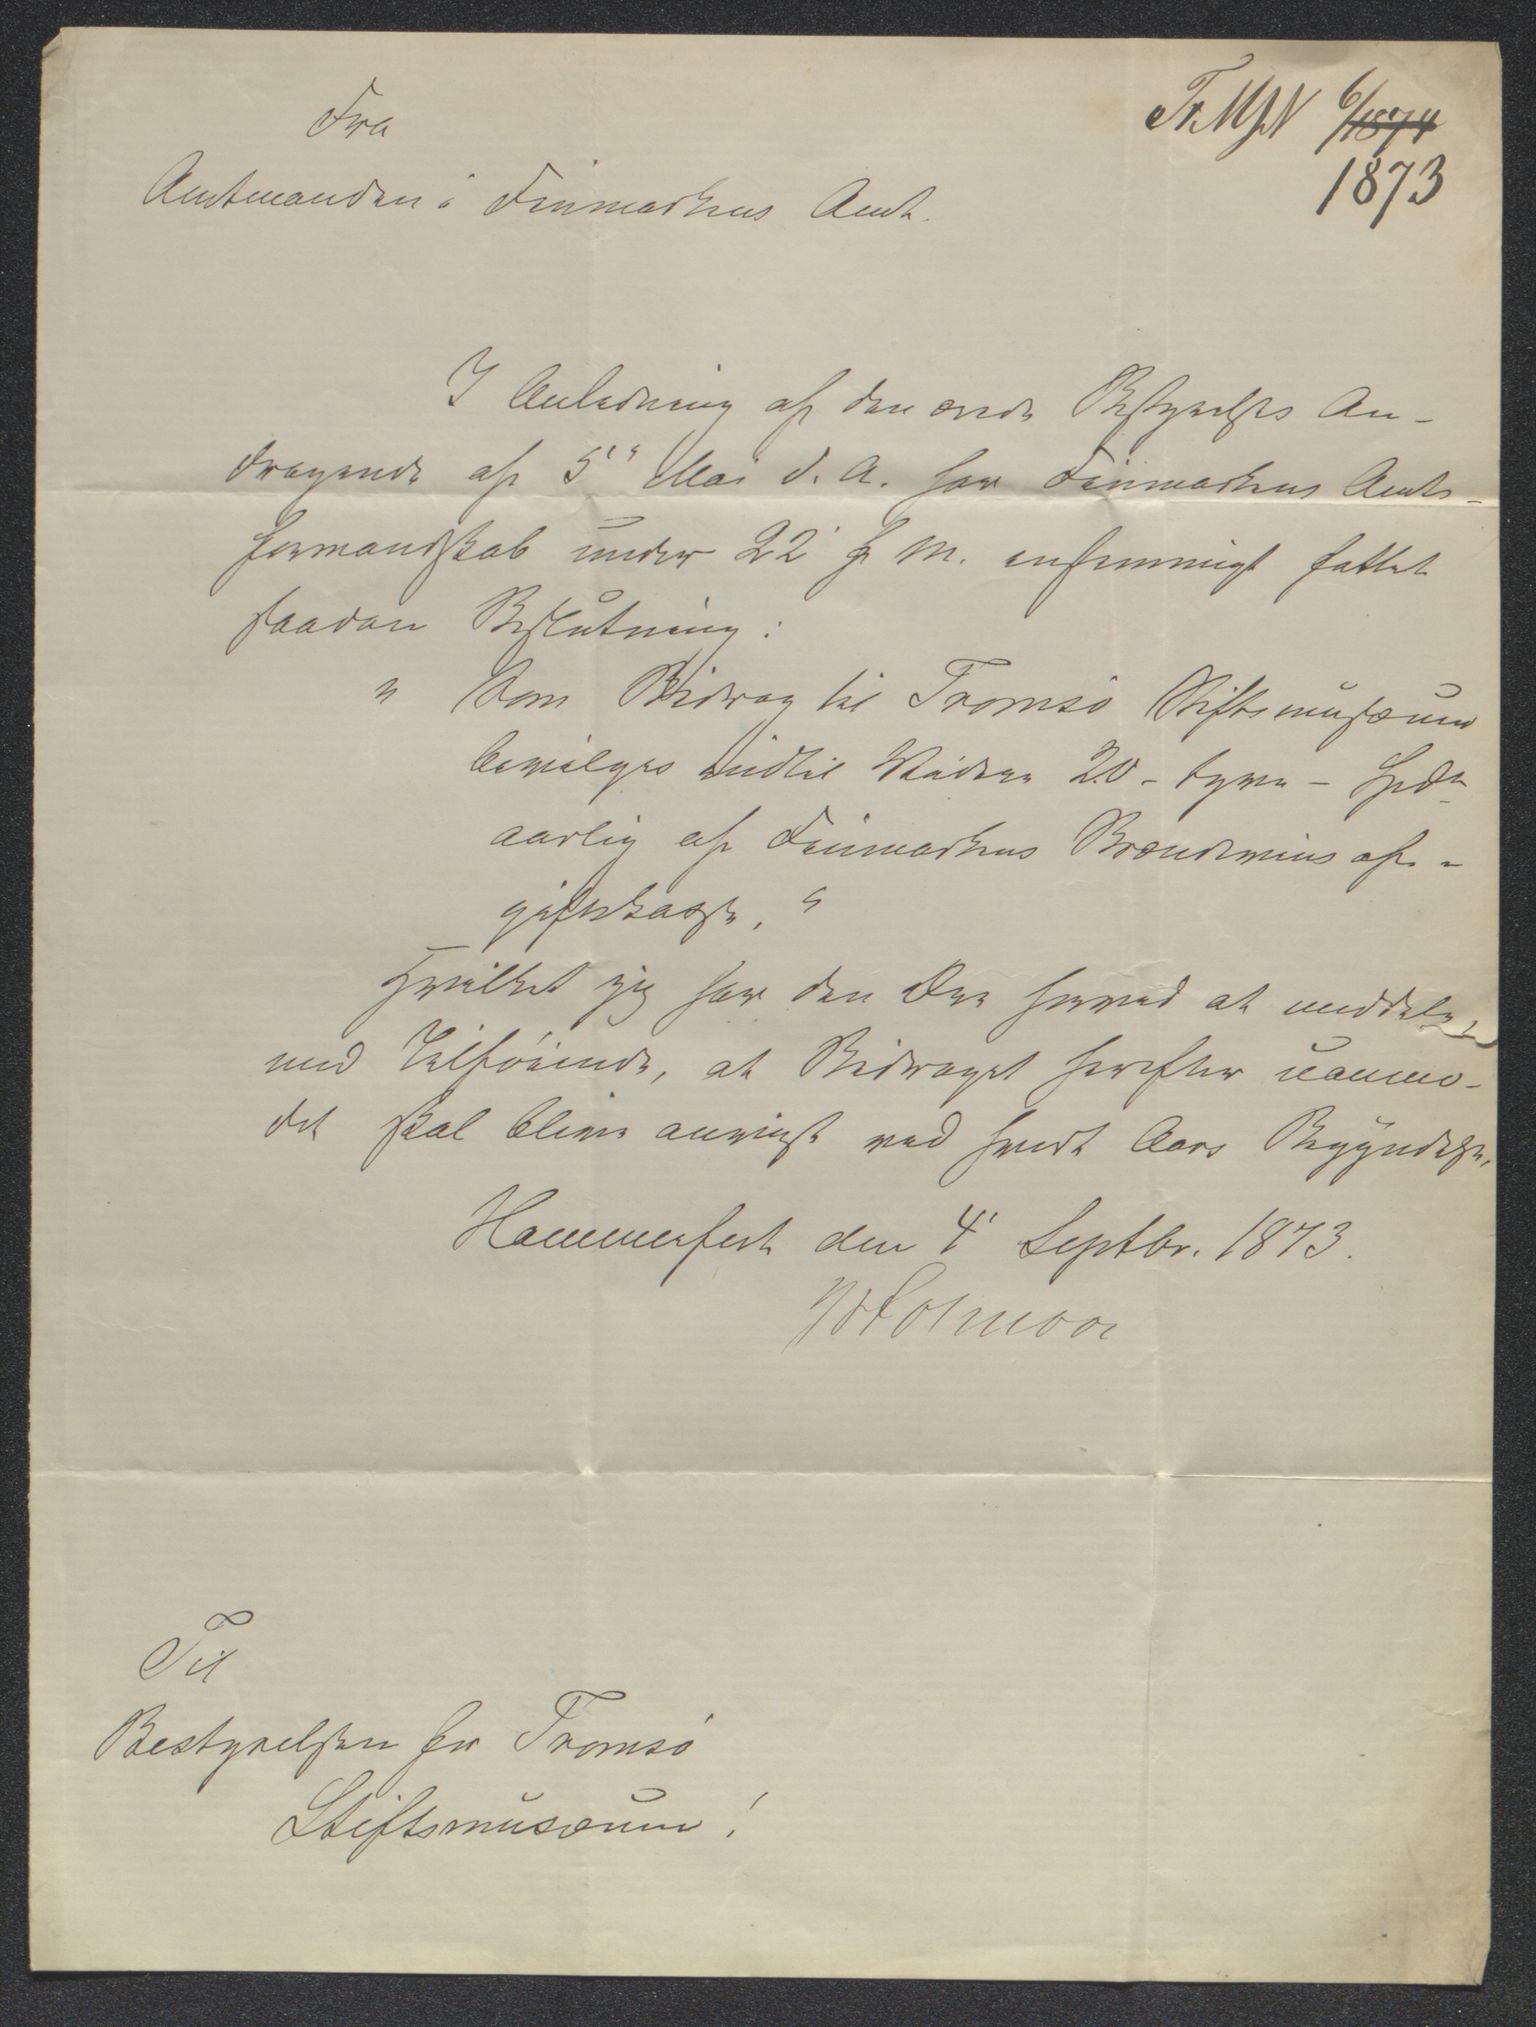 Tr. M J.N 6/1874
1873
Fra
Amtmanden i Finmarkens Amt.
I Anledning af den ærede Bestyrelses An-
dragende af 5' Mai d. A. har Finmarkens Amts-
formandskab under 22' f. M. enstemmigt fattet
saadan Beslutning:
" Som Bidrag til Tromsö Stiftsmusæum
bevilges indtil Videre 20 - tyve - Spd.
aarlig af Finmarkens Brændevinsaf-
giftskasse. "
Hvilket jeg har den Ære herved at meddele,
med Tilføiende, at Bidraget herefter uanmo-
det skal blive anvist ved hvert Aars Begyndelse.
Hammerfest den 4' Septbr. 1873.
Til
Bestyrelsen for Tromsö
Stiftsmusæum!